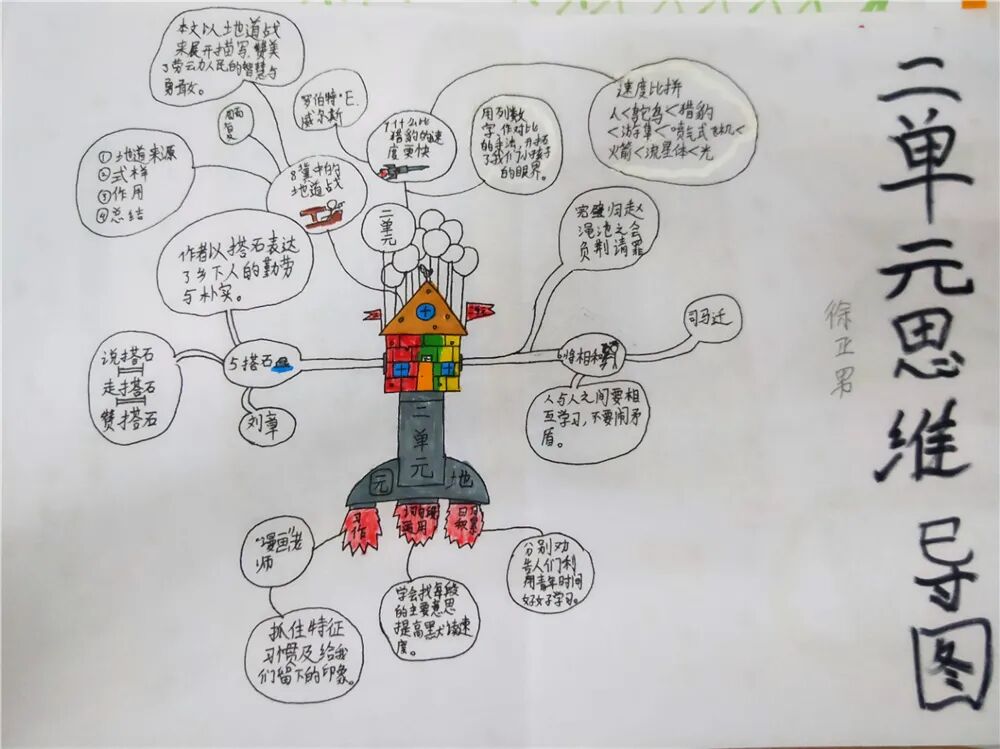 二单元思维导图
徐亚男
本文以土地道战
来展开描写,赞美
了劳动人民的智慧与
勇敢。
①地道来源
②式样
③作用
④总结
8冀中的
地道战
罗伯特·E.
威尔斯
7什么比
猎豹的速
度更快
用列数
字、作对比
的手法,开拓
了我们小孩子
的眼界。
速度比拼
人<鸵鸟<猎豹
<游隼<喷气式飞机<
火箭<流星体<光
二单元
作者以搭石表达
了乡下人的勤劳
与朴实。
说搭石
走搭石
赞搭石
5搭石
刘章
完璧归赵
渑池之会
负荆请罪
6将相和
司马迁
人与人之间要相
互学习,不要闹矛
盾。
二单元
园地
习作
运用
日积累
"漫画"老
师
抓住特征
习惯及给我
们留下的印象。
学会找每段
的主要意思
提高默读速
度。
分别劝
告人们利
用青年时间
好好学习。